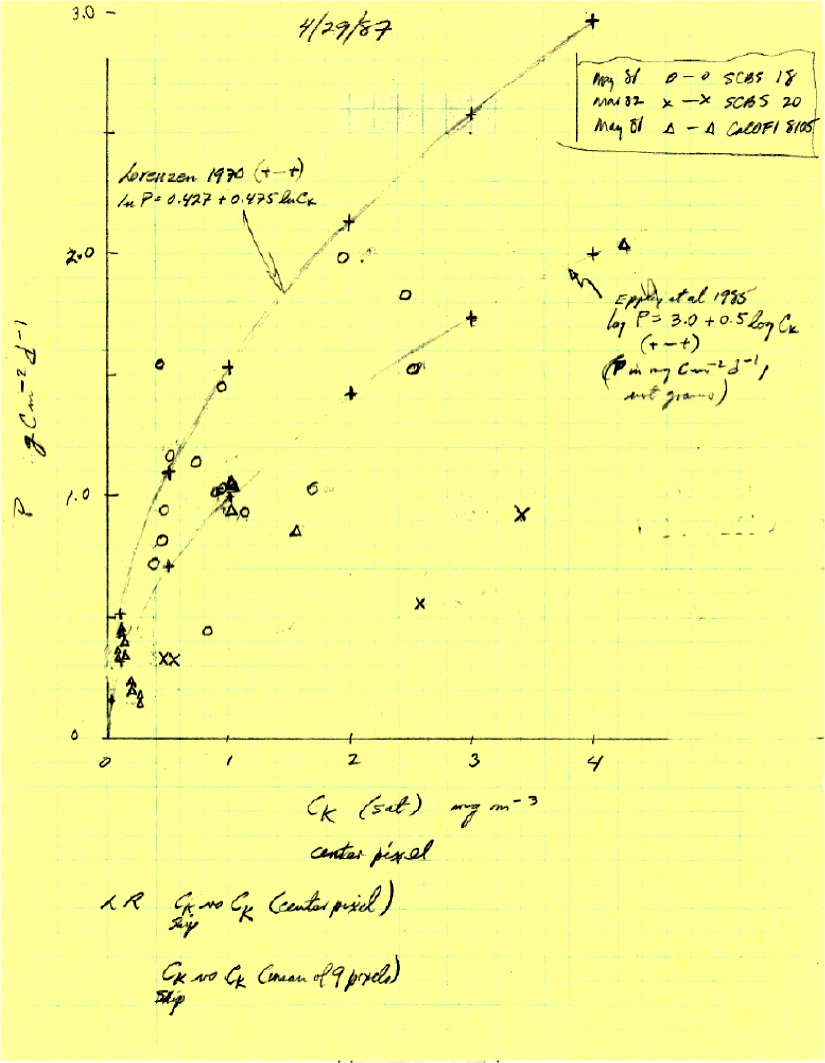 4/29/87
3.0
May 81 o - o SCBS 18
Mar 82 x - x SCBS 20
May 81 Δ - Δ CalCOFI 8105
Lorenzen 1970 (+-+)
ln P = 0.427 + 0.475 ln CK
2.0
Eppley et al 1985
log P = 3.0 + 0.5 log CK
(+-+)
(P in mg C m-2 d-1,
not grams)
P g C m-2 d-1
1.0
0
0 1 2 3 4
CK (sat) mg m-3
center pixel
LR CK vs CK (center pixel)
ship
CK vs CK (mean of 9 pixels)
ship